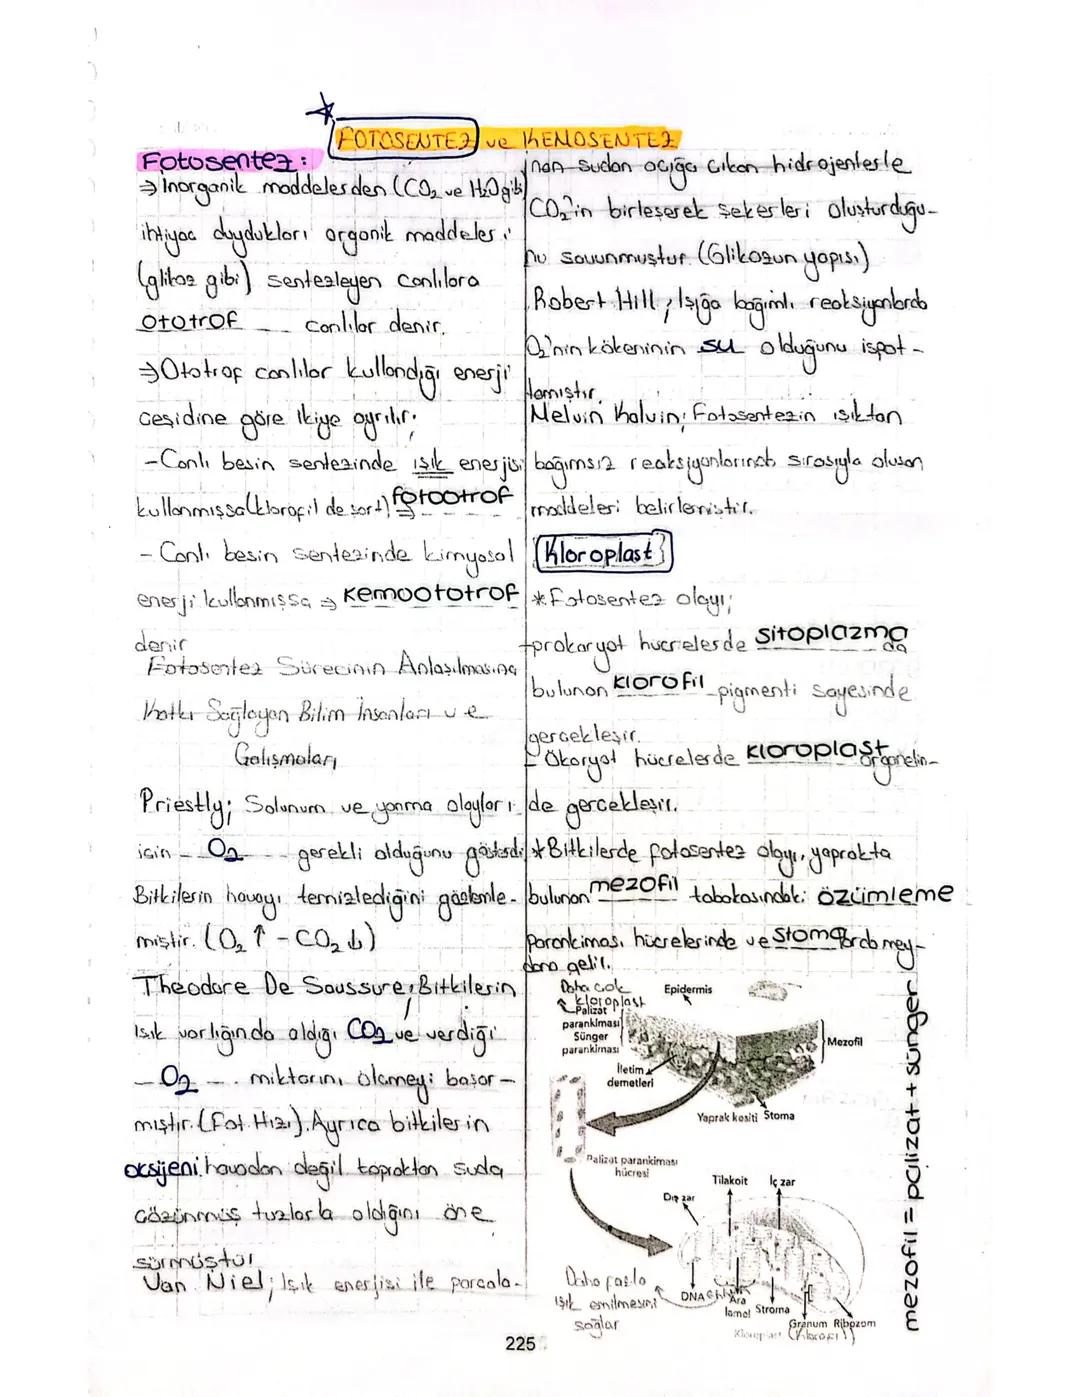 FOTOSENTEZ ve KEMOSENTEZ
Fotosentez:
⇒ İnorganik maddelerden (CO₂ ve H₂O gibi)
ihtiyaç duydukları organik maddeleri
(glikoz gibi) sentezleyen canlılara
ototrof canlılar denir.
⇒ Ototrof canlılar kullandığı enerji
çeşidine göre ikiye ayrılır:
- Canlı besin sentezinde ışık enerjisi
kullanmışsa (klorofil de şart) ⇒ fotootrof
- Canlı besin sentezinde kimyasal
enerji kullanmışsa ⇒ kemoototrof
denir
Fotosentez Sürecinin Anlaşılmasına
Katkı Sağlayan Bilim İnsanları ve
Çalışmaları
Priestly; Solunum ve yanma olayları
için O₂ gerekli olduğunu gösterdi
Bitkilerin havayı temizlediğini gözlemle-
miştir. (O₂ ↑ - CO₂ ↓)
Theodore De Saussure; Bitkilerin
ışık varlığında aldığı CO₂ ve verdiği
O₂ miktarını ölçmeyi başar-
mıştır. (Fot. Hızı). Ayrıca bitkilerin
oksijeni havadan değil topraktan suda
çözünmüş tuzlarla aldığını öne
sürmüştür
Van Niel; Işık enerjisi ile parçala-
nan sudan açığa çıkan hidrojenlerle
CO₂'in birleşerek şekerleri oluşturduğu-
nu savunmuştur. (Glikozun yapısı)
Robert Hill; Işığa bağımlı reaksiyonlarda
O₂'nin kökeninin su olduğunu ispat-
lamıştır.
Melvin Kalvin; Fotosentezin ışıktan
bağımsız reaksiyonlarında sırasıyla oluşan
maddeleri belirlemiştir.
Kloroplast
* Fotosentez olayı;
+prokaryot hücrelerde sitoplazmada
bulunan klorofil pigmenti sayesinde
gerçekleşir.
- Ökaryot hücrelerde kloroplast organelin-
de gerçekleşir.
* Bitkilerde fotosentez olayı, yaprakta
bulunan mezofil tabakasındaki özümleme
parankiması hücrelerinde ve stomalarda mey-
dana gelir.
Daha çok
kloroplast
Epidermis
Palizat
parankiması
Sünger
parankiması
Mezofil
İletim
demetleri
Yaprak kesiti
Stoma
Palizat parankiması
hücresi
Tilakoit
İç zar
Dış zar
Daha fazla
ışık emilmesini
sağlar
DNA
Ara
lamel
Stroma
Granum
Ribozom
Kloroplast
(klorofil)
mezofil = palizat + sünger
225